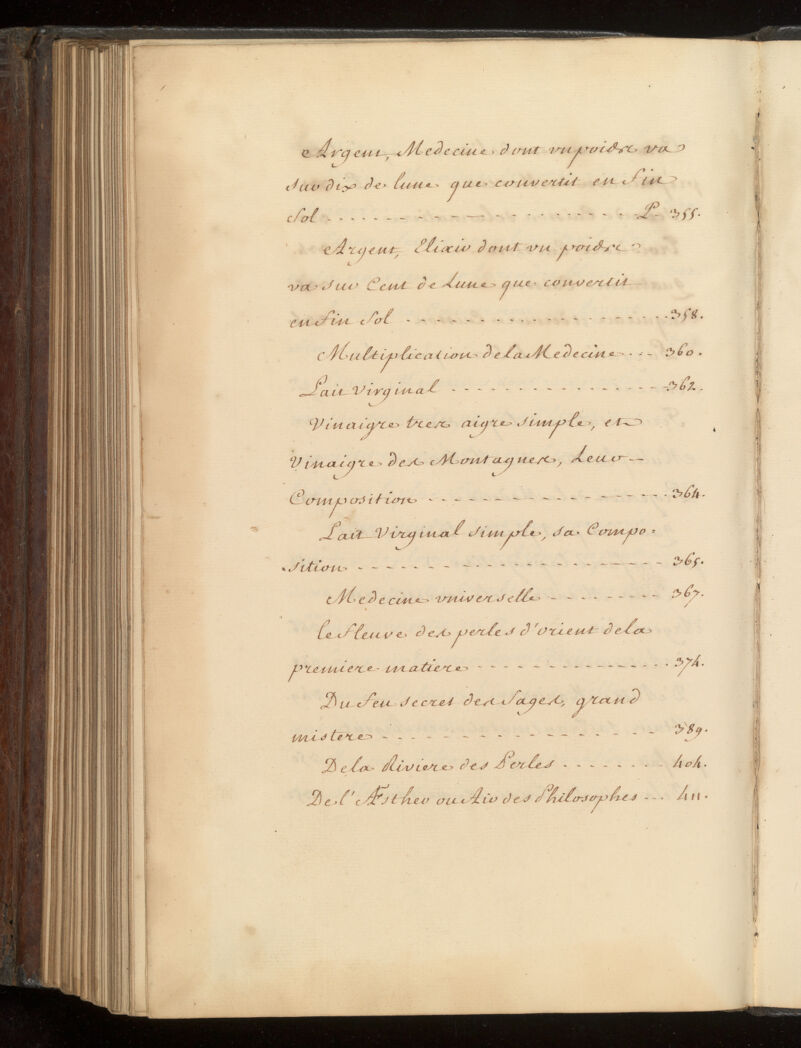 Argent, Medecine dont vn poidx va
sur dix de lune que convertit en Fin
Sol - - - - - - - - - - - - - - - - - - - - P. 355.
Argent, Elixir dont vn poidx
va sur Cent de Lune que convertit
en Fin Sol - - - - - - - - - - - - - - - - - 358.
Multiplication dela Medecine - - - 360.
Lait Virginal - - - - - - - - - - - - - - - 362.
Vinaigre trex aigre simple, et
Vinaigre dex Montagnex, Leur
Composition - - - - - - - - - - - - - - - - 364.
Lait Virginal simple, sa Compo=
sition - - - - - - - - - - - - - - - - - - - - 365.
Medecine vniverselle - - - - - - - - 367.
le Fleuve dex perles d'orient dela
premiere matiere - - - - - - - - - - - - - 374.
Du Feu secret dex Sagex, grand
mistere - - - - - - - - - - - - - - - - - - 389.
Dela Riviere des Perles - - - - - - - 404.
De l'Æsther ou Air des Philosophes - - - 411.